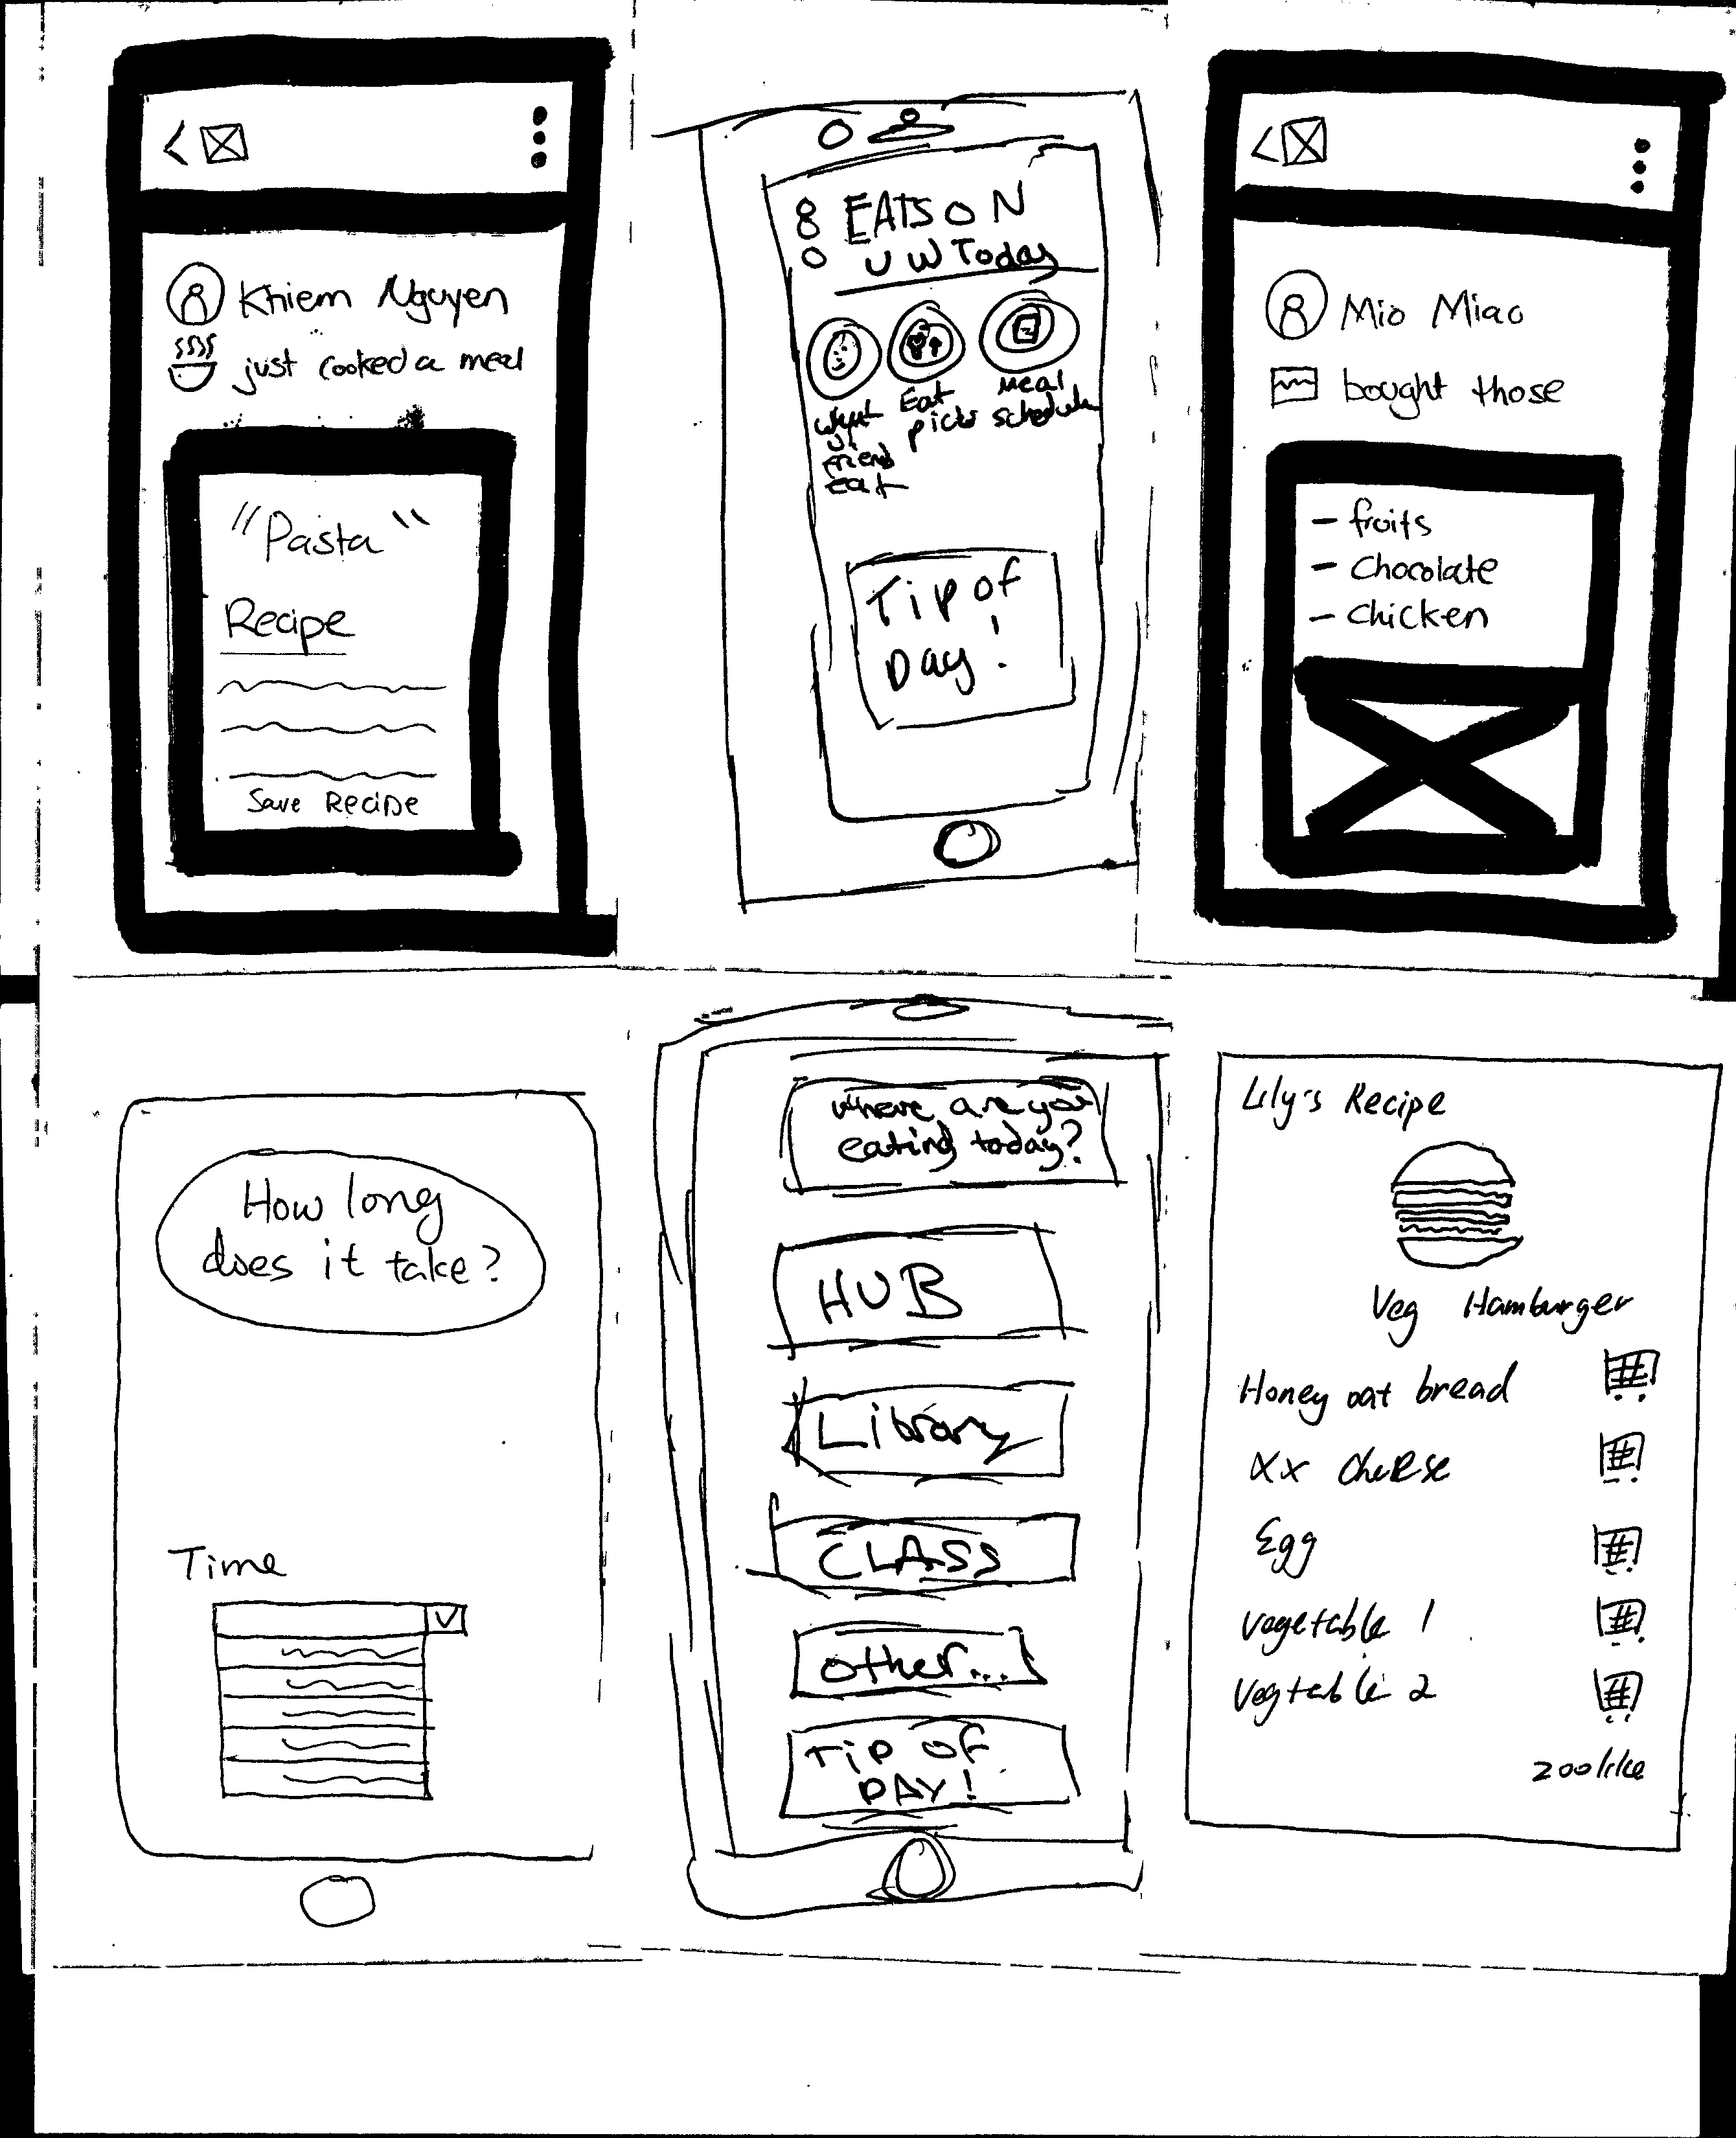 Khiem Nguyen
just cooked a meal
"Pasta"
Recipe
Save Recipe
EATS ON
UW Today
What
ur
friend
eat
Eat
picks
Meal
schedule
Tip of
Day!
Mio Miao
bought those
- fruits
- Chocolate
- Chicken
How long
does it take?
Time
where are you
eating today?
HUB
Library
CLASS
other...
Tip OF
DAY!
Lily's Recipe
Veg Hamburger
Honey oat bread
xx cheese
Egg
vegetable 1
Vegtable 2
200 like